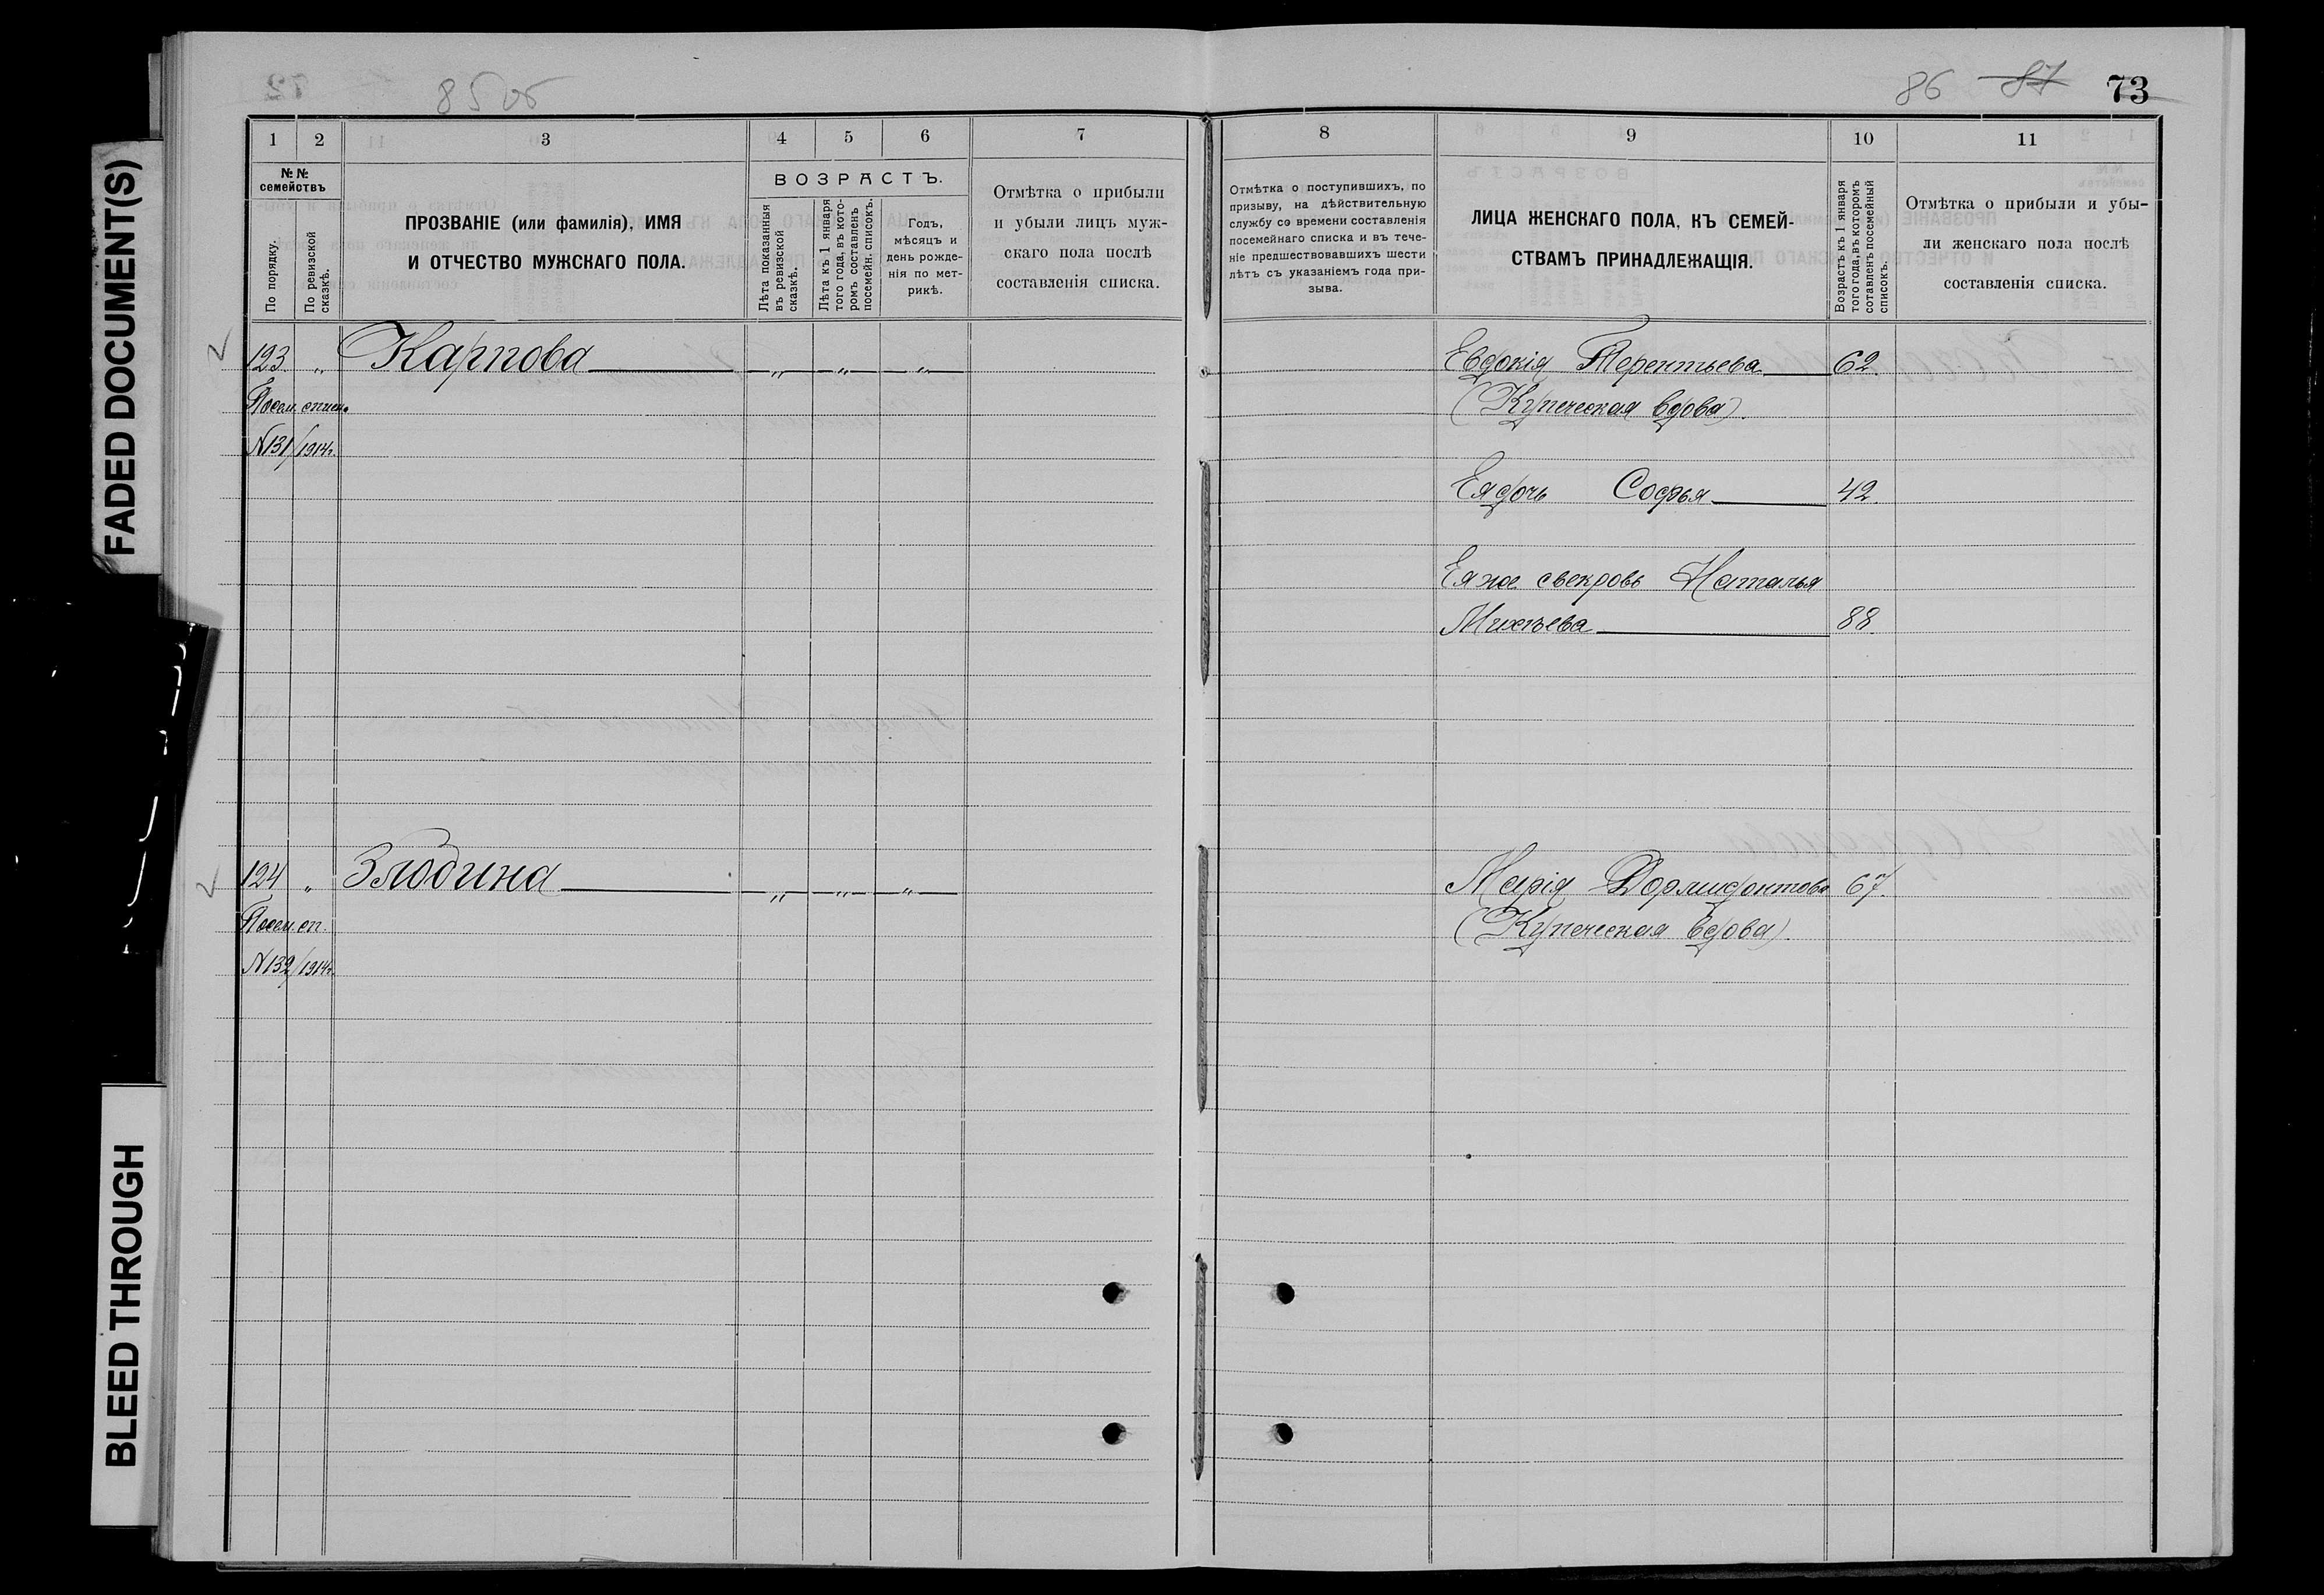 FADED DOCUMENT(S)
BLEED THROUGH
85 об
86 87 73
1 2 3 4 5 6 7
№ № семействъ
По порядку.
По ревизской сказкѣ.
ПРОЗВАНІЕ (или фамилія), ИМЯ
И ОТЧЕСТВО МУЖСКАГО ПОЛА.
ВОЗРАСТЪ.
Лѣта показанныя
въ ревизской
сказкѣ.
Лѣта къ 1 января
того года, въ кото-
ромъ составленъ
посемейн. списокъ.
Годъ,
мѣсяцъ и
день рожде-
нія по мет-
рикѣ.
Отмѣтка о прибыли
и убыли лицъ муж-
скаго пола послѣ
составленія списка.
123. „ Карпова „ „ „
Посем. списк.
№131/1914г.
124 „ Злобина „ „ „
Посем. сп.
№132/1914г.
8 9 10 11
Отмѣтка о поступившихъ, по
призыву, на дѣйствительную
службу со времени составленія
посемейнаго списка и въ тече-
ніе предшествовавшихъ шести
лѣтъ съ указаніемъ года при-
зыва.
ЛИЦА ЖЕНСКАГО ПОЛА, КЪ СЕМЕЙ-
СТВАМЪ ПРИНАДЛЕЖАЩІЯ.
Возрастъ къ 1 января
того года, въ которомъ
составленъ посемейный
списокъ.
Отмѣтка о прибыли и убы-
ли женскаго пола послѣ
составленія списка.
Евдокія Терентьева 62.
(Купеческая вдова).
Ея дочь Софья 42.
Ея же свекровь Наталья
Михѣева 88.
Марія Дормидонтова 67.
(Купеческая вдова).